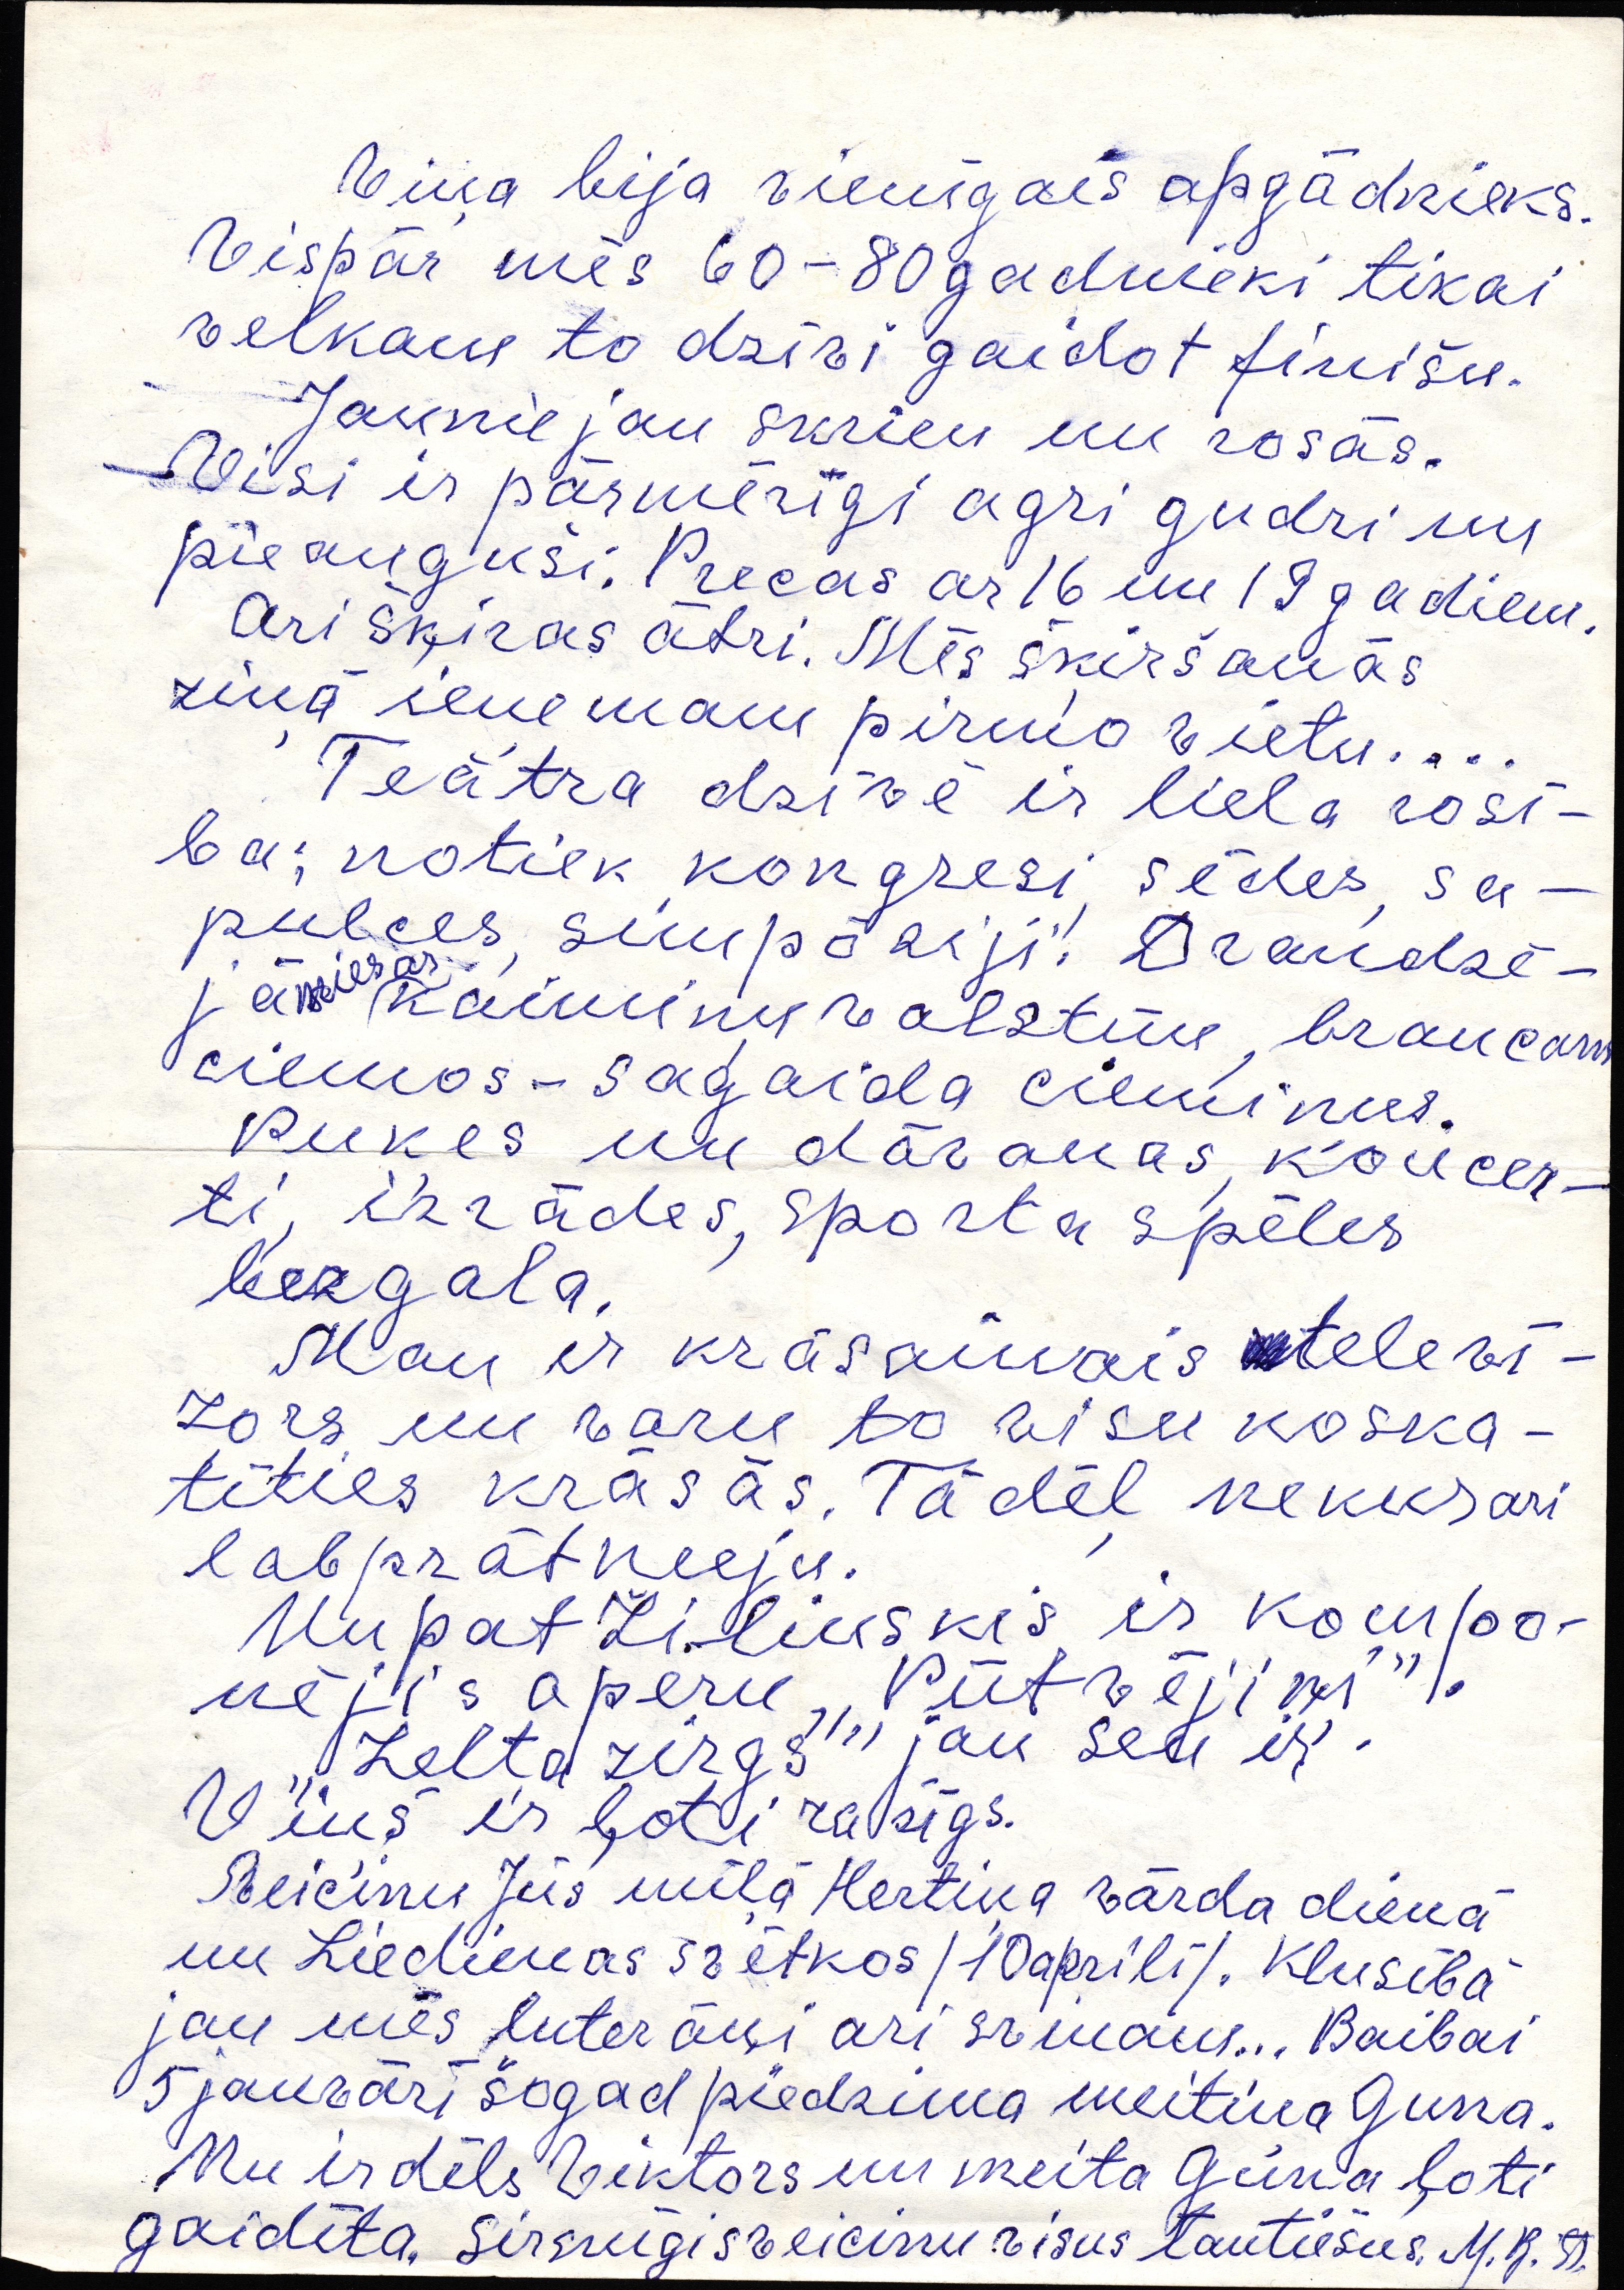 Viņa bija vienīgais apgādnieks.
Vispār mēs 60-80gadnieki tikai
velkam to dzīvi gaidot finišu.
Jaunie jau skrien un rosās.
Visi ir pārmērīgi agri gudri un
pieauguši. Precas ar 16 un 19 gadiem.
Ari šķiras ātri. Mēs šķiršanās
ziņā ieņemam pirmo vietu....
Teātra dzīvē ir liela rosī-
ba; notiek kongresi, sēdes, sa-
pulces, simpōziji! Draudzē-
jāmiesās kaimiņu valstīm, braucam
ciemos - sagaida ciemiņus.
Pukes un dāvanas, koncer-
ti, izrādes, sporta spēles
bezgala.
Man ir krāsainais televī-
zors un varu to visu noska-
tīties krāsās. Tādēļ nekur ari
labprāt neeju.
Nupat Žilinskis ir kompo-
nējis operu „Pūt vējiņi".
„Zelta zirgs"" jau sen ir.
Viņš ir ļoti ražīgs.
Sveicinu Jūs mīļā Hertiņa vārda dienā
un Liedienas svētkos /10aprilī/. Klusībā
jau mēs luterāņi ari svinam... Baibai
5 janvārī šogad piedzima meitiņa Guna.
Nu ir dēls Viktors un meita Guna ļoti
gaidīta. Sirsnīgi sveicinu visus tautiešus. M. R.